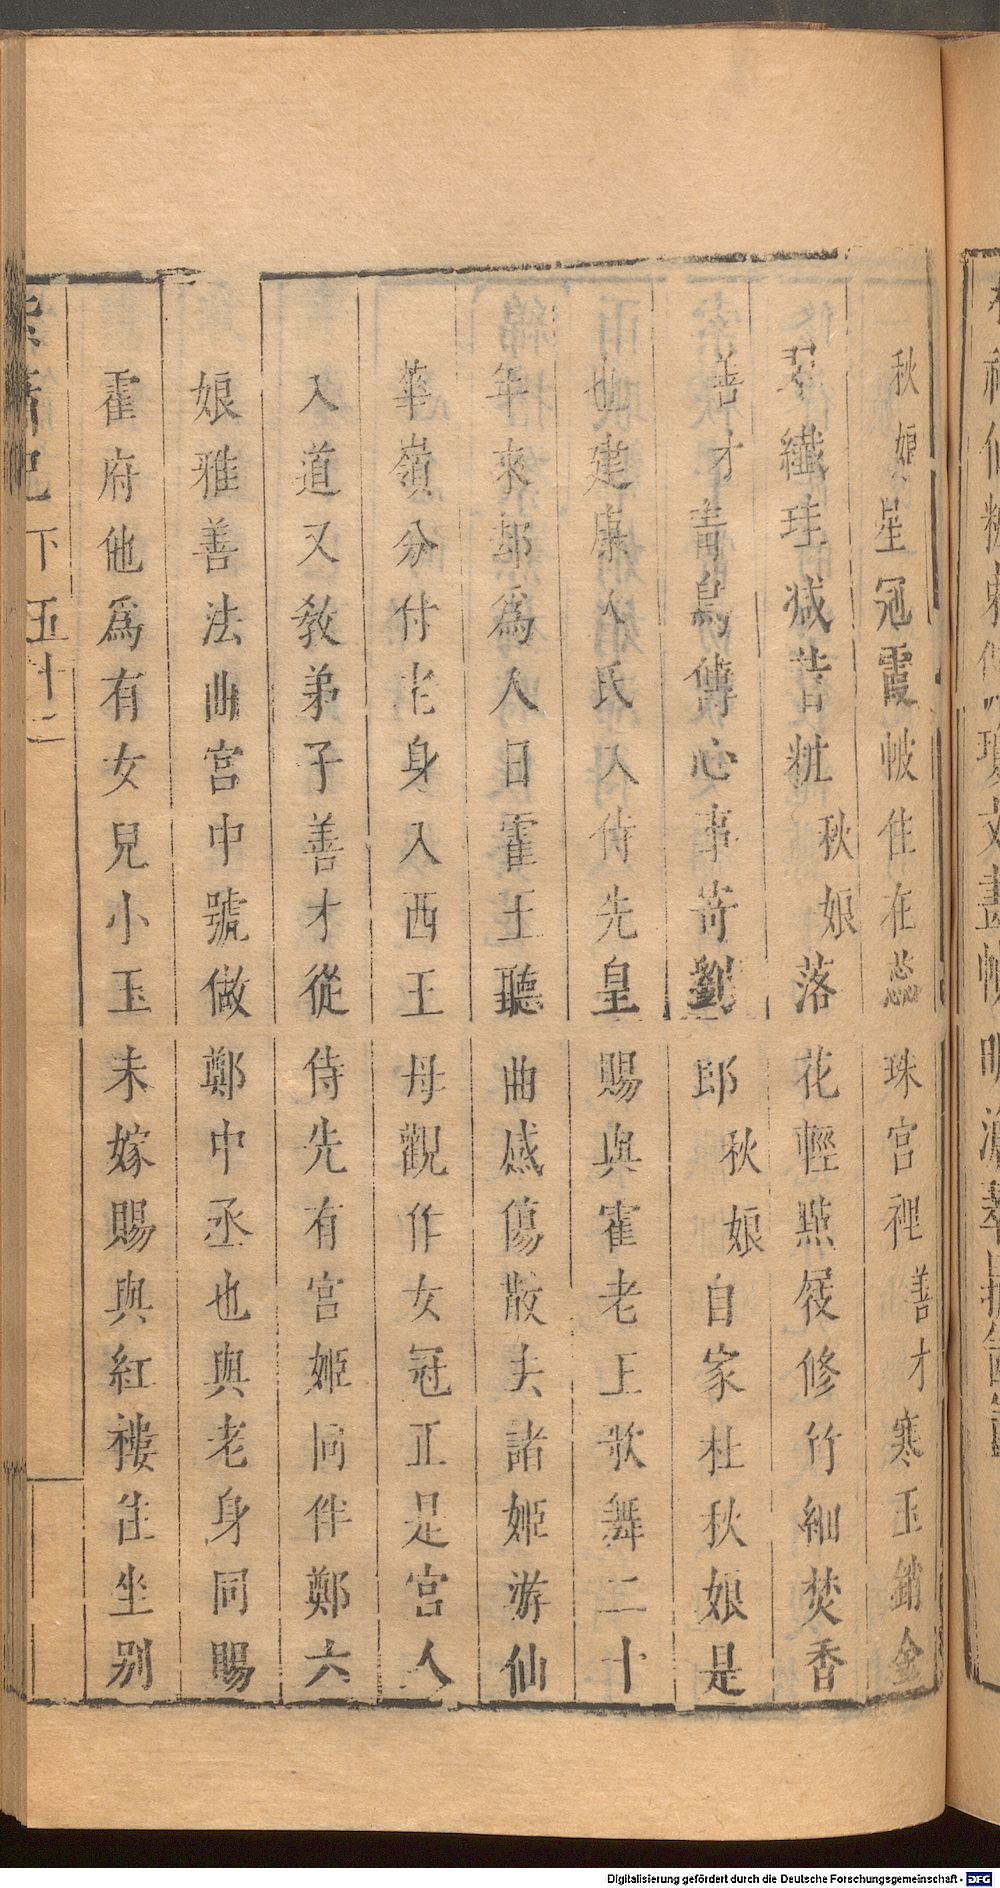 秋娘星冠霞帔住在蕊珠宮裡善才寒玉銷金
翠纖珪減昔粧秋娘落花輕㸃屐修竹細焚香
善才青鳥傳心事寄劉郎秋娘自家杜秋娘是
也建康人氏入侍先皇賜與霍老王歌舞二十
年來却為人日霍王聽曲感傷散夫諸姬游仙
華嶺分付老身入西王母觀作女冠正是宮人
入道又敎弟子善才從侍先有宮姬同伴鄭六
娘雅善法曲宮中號做鄭中丞也與老身同賜
霍府他爲有女兒小玉未嫁賜與紅樓住坐别
紫簫記 下 五十二
Digitalisierung gefördert durch die Deutsche Forschungsgemeinschaft - DFG